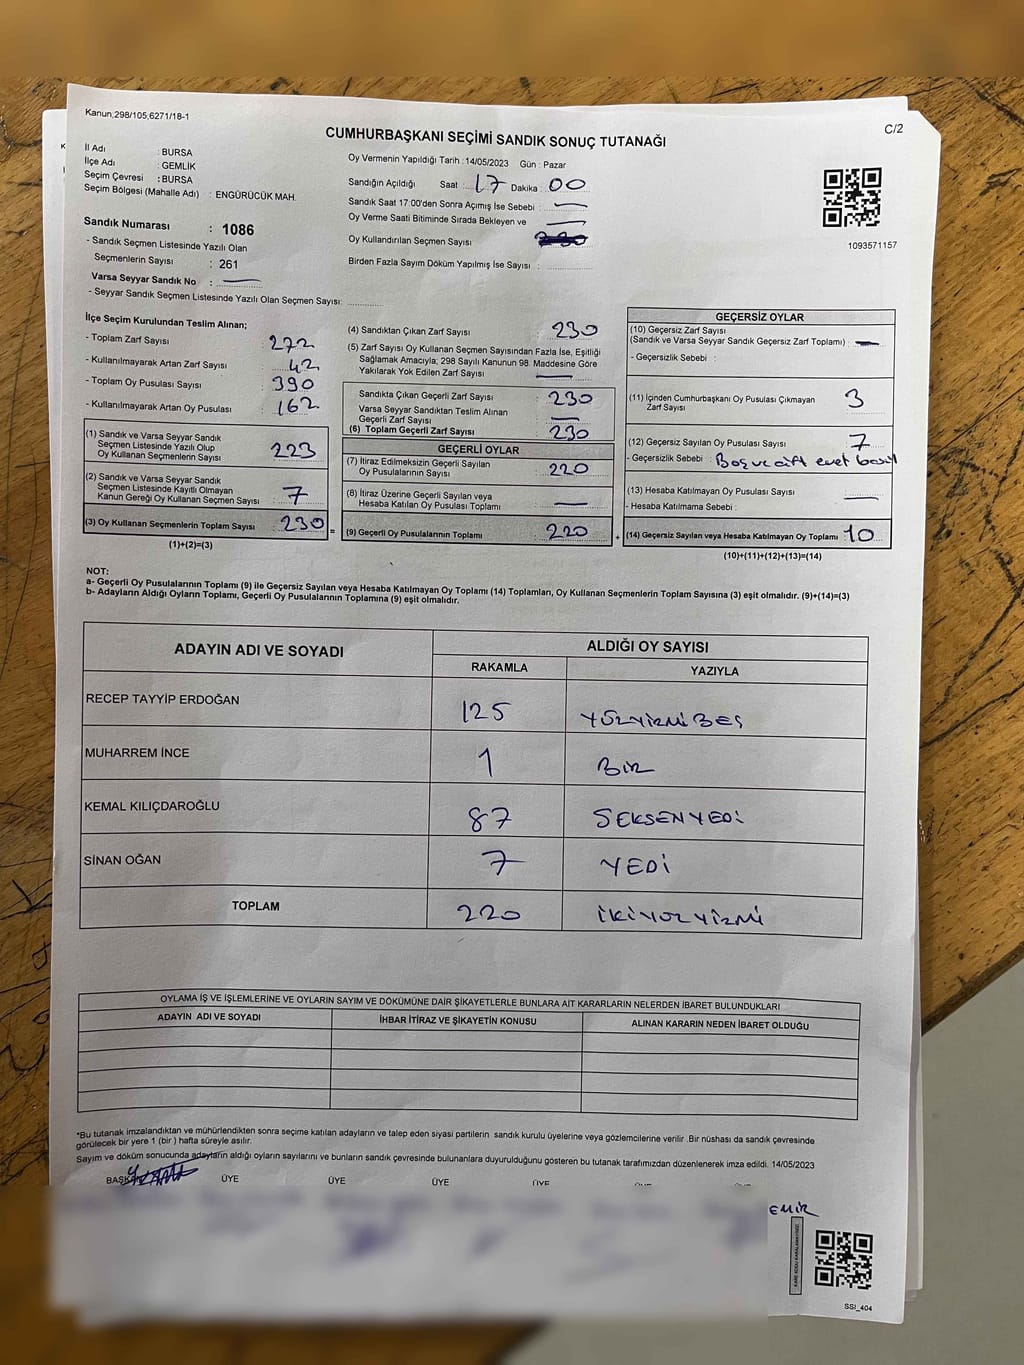 Kanun,298/105,6271/18-1
C/2
CUMHURBAŞKANI SEÇİMİ SANDIK SONUÇ TUTANAĞI
İl Adı : BURSA
İlçe Adı : GEMLİK
Seçim Çevresi : BURSA
Seçim Bölgesi (Mahalle Adı) : ENGÜRÜCÜK MAH.
Sandık Numarası : 1086
- Sandık Seçmen Listesinde Yazılı Olan
Seçmenlerin Sayısı : 261
Varsa Seyyar Sandık No :
- Seyyar Sandık Seçmen Listesinde Yazılı Olan Seçmen Sayısı:
Oy Vermenin Yapıldığı Tarih : 14/05/2023 Gün : Pazar
Sandığın Açıldığı Saat : 17 Dakika : 00
Sandık Saat 17:00'den Sonra Açımış İse Sebebi : —
Oy Verme Saati Bitiminde Sırada Bekleyen ve
Oy Kullandırılan Seçmen Sayısı
Birden Fazla Sayım Döküm Yapılmış İse Sayısı :
1093571157
İlçe Seçim Kurulundan Teslim Alınan;
- Toplam Zarf Sayısı : 272
- Kullanılmayarak Artan Zarf Sayısı : 42
- Toplam Oy Pusulası Sayısı : 390
- Kullanılmayarak Artan Oy Pusulası : 162
(1) Sandık ve Varsa Seyyar Sandık
Seçmen Listesinde Yazılı Olup
Oy Kullanan Seçmenlerin Sayısı : 223
(2) Sandık ve Varsa Seyyar Sandık
Seçmen Listesinde Kayıtlı Olmayan
Kanun Gereği Oy Kullanan Seçmen Sayısı : 7
(3) Oy Kullanan Seçmenlerin Toplam Sayısı : 230
(1)+(2)=(3)
(4) Sandıktan Çıkan Zarf Sayısı : 230
(5) Zarf Sayısı Oy Kullanan Seçmen Sayısından Fazla İse, Eşitliği
Sağlamak Amacıyla; 298 Sayılı Kanunun 98. Maddesine Göre
Yakılarak Yok Edilen Zarf Sayısı : —
Sandıkta Çıkan Geçerli Zarf Sayısı : 230
Varsa Seyyar Sandıktan Teslim Alınan
Geçerli Zarf Sayısı : —
(6) Toplam Geçerli Zarf Sayısı : 230
GEÇERLİ OYLAR
(7) İtiraz Edilmeksizin Geçerli Sayılan
Oy Pusulasının Sayısı : 220
(8) İtiraz Üzerine Geçerli Sayılan veya
Hesaba Katılan Oy Pusulası Toplamı : —
(9) Geçerli Oy Pusulalarının Toplamı : 220
GEÇERSİZ OYLAR
(10) Geçersiz Zarf Sayısı
(Sandık ve Varsa Seyyar Sandık Geçersiz Zarf Toplamı) : —
- Geçersizlik Sebebi :
(11) İçinden Cumhurbaşkanı Oy Pusulası Çıkmayan
Zarf Sayısı : 3
(12) Geçersiz Sayılan Oy Pusulası Sayısı : 7
- Geçersizlik Sebebi : Boş ve çift evet
(13) Hesaba Katılmayan Oy Pusulası Sayısı : —
- Hesaba Katılmama Sebebi :
(14) Geçersiz Sayılan veya Hesaba Katılmayan Oy Toplamı : 10
(10)+(11)+(12)+(13)=(14)
NOT:
a- Geçerli Oy Pusulalarının Toplamı (9) ile Geçersiz Sayılan veya Hesaba Katılmayan Oy Toplamı (14) Toplamları, Oy Kullanan Seçmenlerin Toplam Sayısına (3) eşit olmalıdır. (9)+(14)=(3)
b- Adayların Aldığı Oyların Toplamı, Geçerli Oy Pusulalarının Toplamına (9) eşit olmalıdır.
ADAYIN ADI VE SOYADI
ALDIĞI OY SAYISI
RAKAMLA YAZIYLA
RECEP TAYYİP ERDOĞAN 125 YÜZYİRMİBEŞ
MUHARREM İNCE 1 BİR
KEMAL KILIÇDAROĞLU 87 SEKSENYEDİ
SİNAN OĞAN 7 YEDİ
TOPLAM 220 İKİYÜZYİRMİ
OYLAMA İŞ VE İŞLEMLERİNE VE OYLARIN SAYIM VE DÖKÜMÜNE DAİR ŞİKAYETLERLE BUNLARA AİT KARARLARIN NELERDEN İBARET BULUNDUKLARI
ADAYIN ADI VE SOYADI İHBAR İTİRAZ VE ŞİKAYETİN KONUSU ALINAN KARARIN NEDEN İBARET OLDUĞU
*Bu tutanak imzalandıktan ve mühürlendikten sonra seçime katılan adayların ve talep eden siyasi partilerin sandık kurulu üyelerine veya gözlemcilerine verilir .Bir nüshası da sandık çevresinde
görülecek bir yere 1 (bir ) hafta süreyle asılır.
Sayım ve döküm sonucunda adayların aldığı oyların sayılarını ve bunların sandık çevresinde bulunanlara duyurulduğunu gösteren bu tutanak tarafımızdan düzenlenerek imza edildi. 14/05/2023
BAŞKAN ÜYE ÜYE ÜYE ÜYE
EMİR
SSI_404